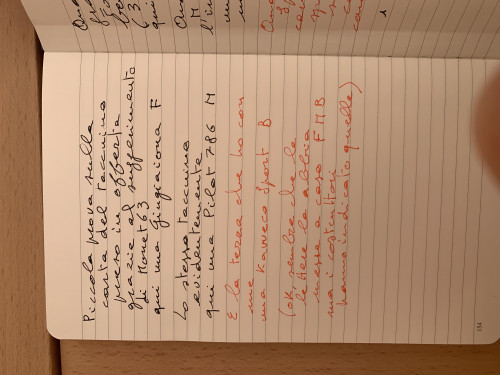 Piccola prova sulla
carta del taccuino
preso in offerta
grazie al suggerimento
di Monet63
qui una Giugiaiona F
Lo stesso taccuino
evidentemente
qui una Pilot 78G M
E la terza che ho con
me una Kaweco Sport B
(ok sembra che le
lettere le abbia
messe a caso F M B
ma i costruttori
hanno indicato quelle)